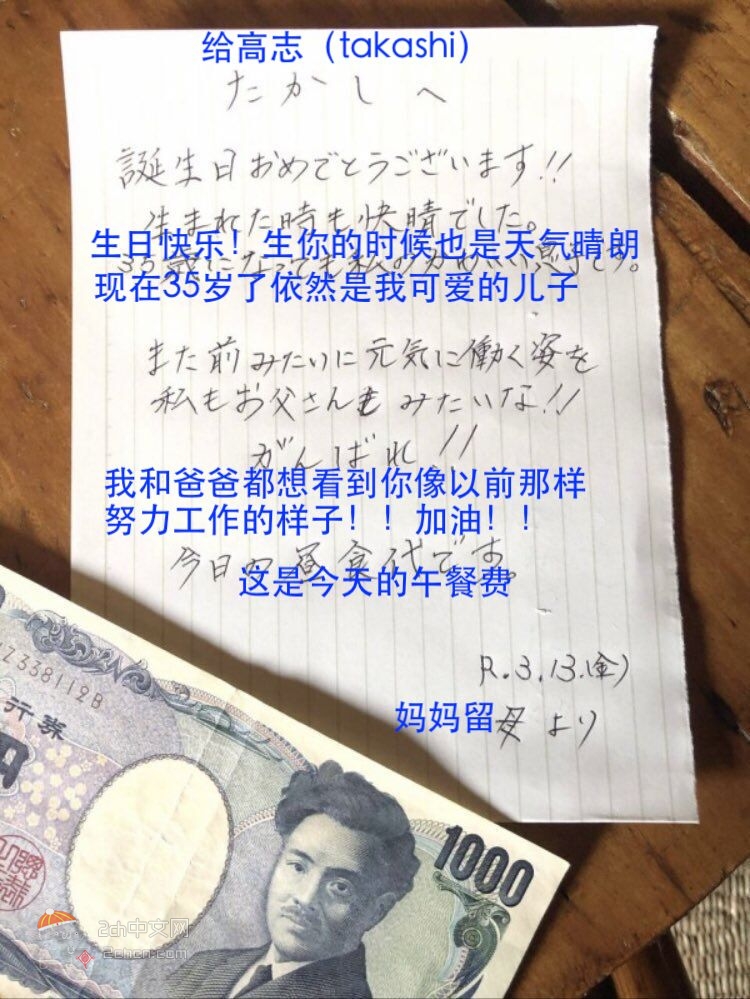 给高志（takashi）
たかしへ
誕生日おめでとうございます!!
生まれた時も快晴でした。
生日快乐！生你的时候也是天气晴朗
35歳になっても私のかわいい息子です。
现在35岁了依然是我可爱的儿子
また前みたいに元気に働く姿を
私もお父さんもみたいな!!
がんばれ!!
我和爸爸都想看到你像以前那样
努力工作的样子！！加油！！
今日の昼食代です。
这是今天的午餐费
R.3.13.(金)
妈妈留
母より
Z338112B
行券
円
1000
2ch中文网
2chcn.com